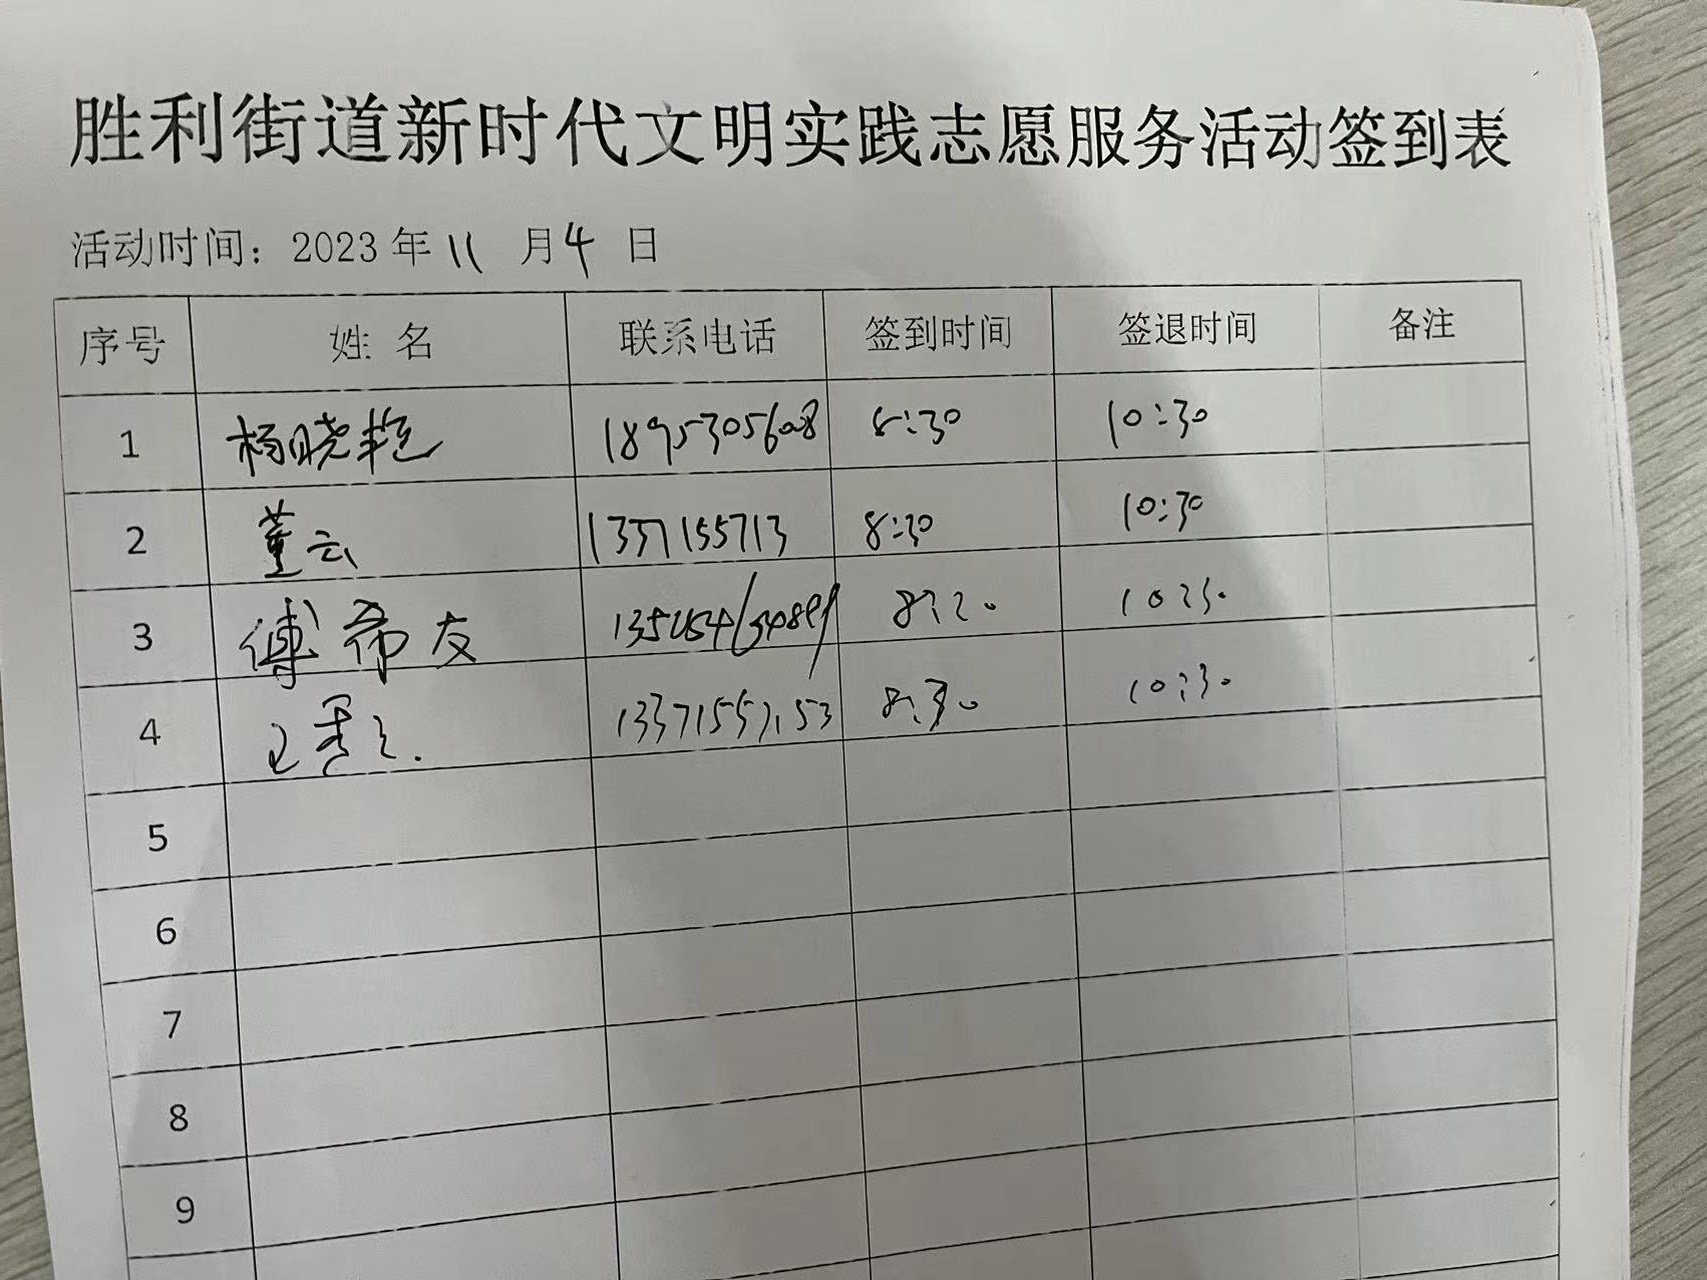 胜利街道新时代文明实践志愿服务活动签到表
活动时间：2023年 11 月 4 日
序号 姓 名 联系电话 签到时间 签退时间 备注
1 杨晓艳 18953056008 8:30 10:30
2 董云 1337155713 8:30 10:30
3 傅希友 8:30 10:30
4 13371557153 8:30 10:30
5
6
7
8
9